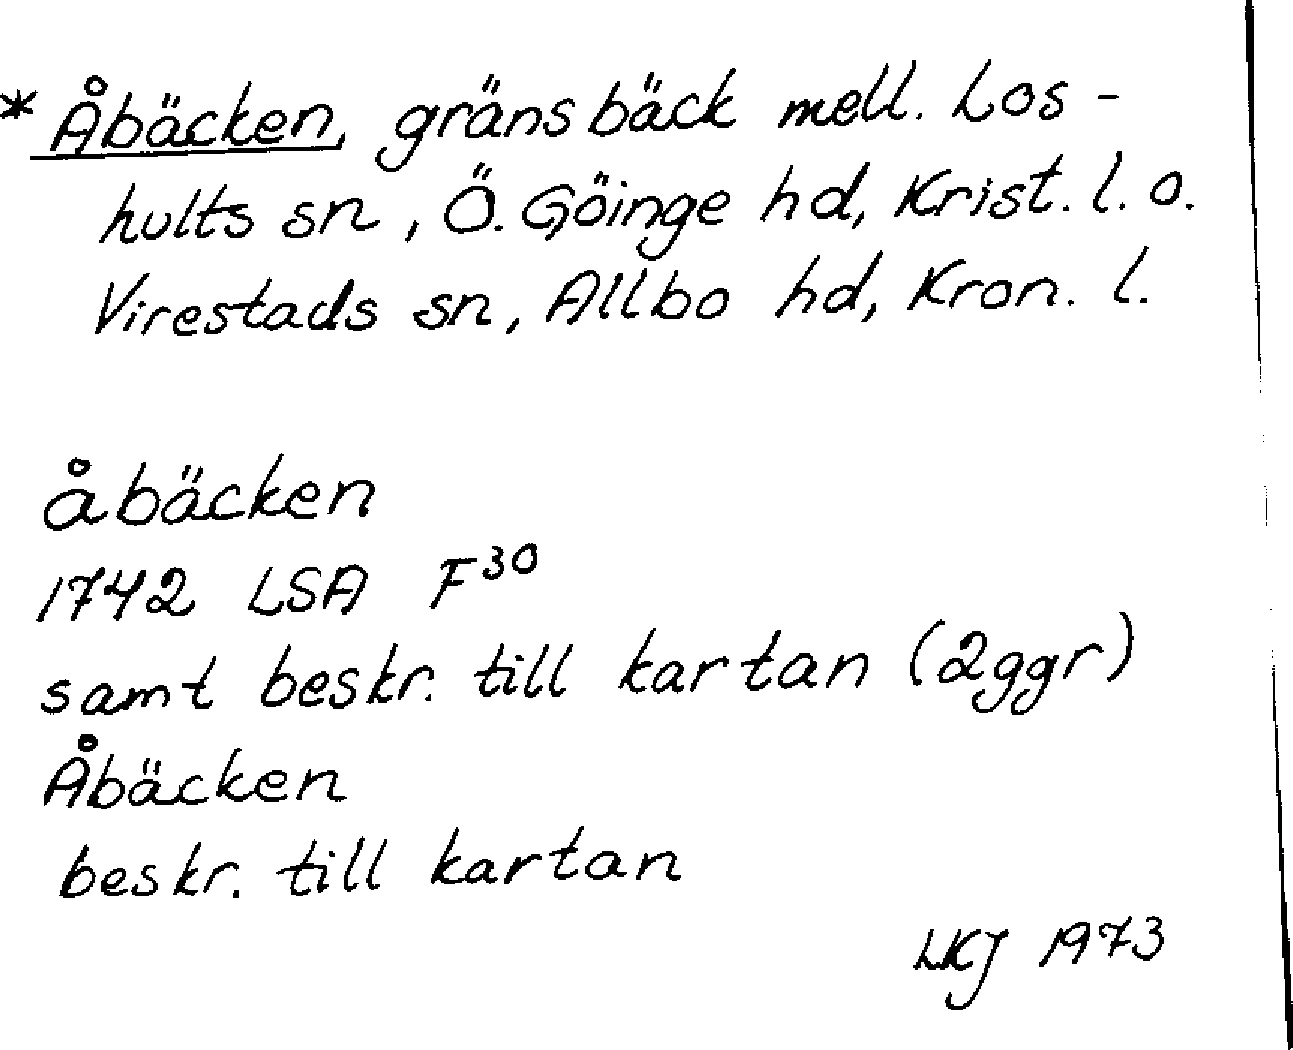 * Åbäcken, gränsbäck mell. Los-
hults sn, Ö. Göinge hd, Krist. l. o.
Virestads sn, Allbo hd, Kron. l.
åbäcken
1742 LSA F30
samt beskr. till kartan (2ggr)
Åbäcken
beskr. till kartan
LKJ 1973